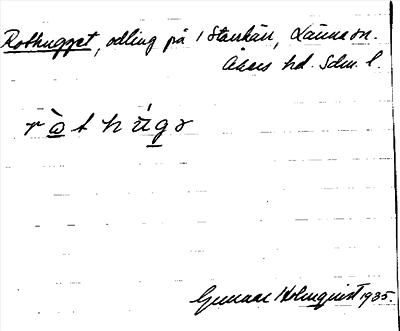 Rothugget, odling på 1 Stenkär, Länna sn.
Åkers hd. Sdm. l.
r ò t h ú g ə
Gunnar Holmquist 1935.